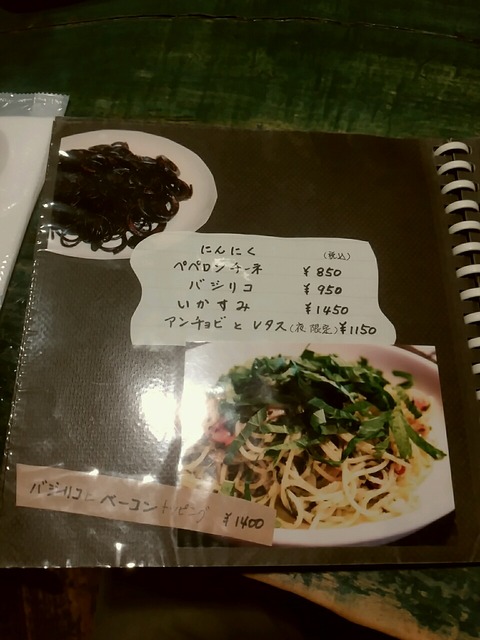 にんにく (税込)
ペペロンチーネ ¥850
バジリコ ¥950
いかすみ ¥1450
アンチョビとレタス(夜限定)¥1150
バジリコとベーコントッピング ¥1400